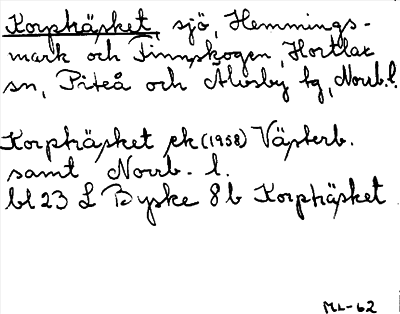 Korpträsket, sjö, Hemmings-
mark och Finnskogen, Hortlax
sn, Piteå och Älvsby tg, Norrb. l.
Korpträsket ek (1958) Västerb.
samt Norrb. l.
bl 23 L Byske 8 b Korpträsket
ML-62